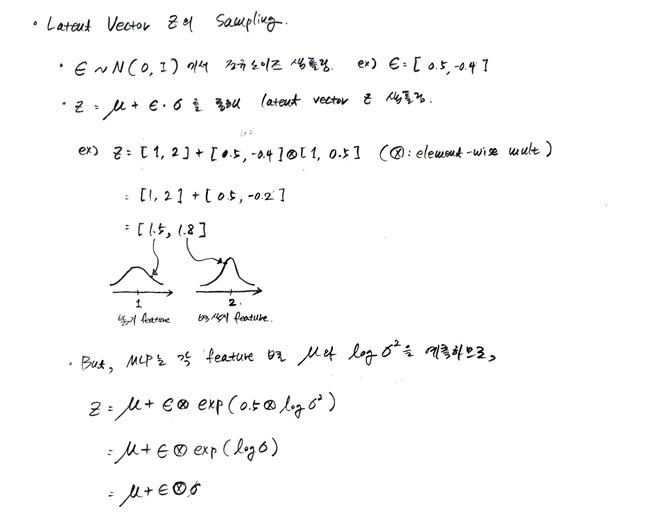 · Latent Vector Z의 Sampling.
· ε ~ N(0, I) 에서 정규 노이즈 샘플링. ex) ε = [0.5, -0.4]
· z = μ + ε · σ 를 통해 latent vector z 샘플링.
ex) z = [1, 2] + [0.5, -0.4] ⊗ [1, 0.5] (⊗: element-wise mult)
= [1, 2] + [0.5, -0.2]
= [1.5, 1.8]
1 2.
feature feature.
· But, MLP는 각 feature 별로 μ와 log σ² 을 예측하므로,
z = μ + ε ⊗ exp(0.5 ⊗ log σ²)
= μ + ε ⊗ exp(log σ)
= μ + ε ⊗ σ